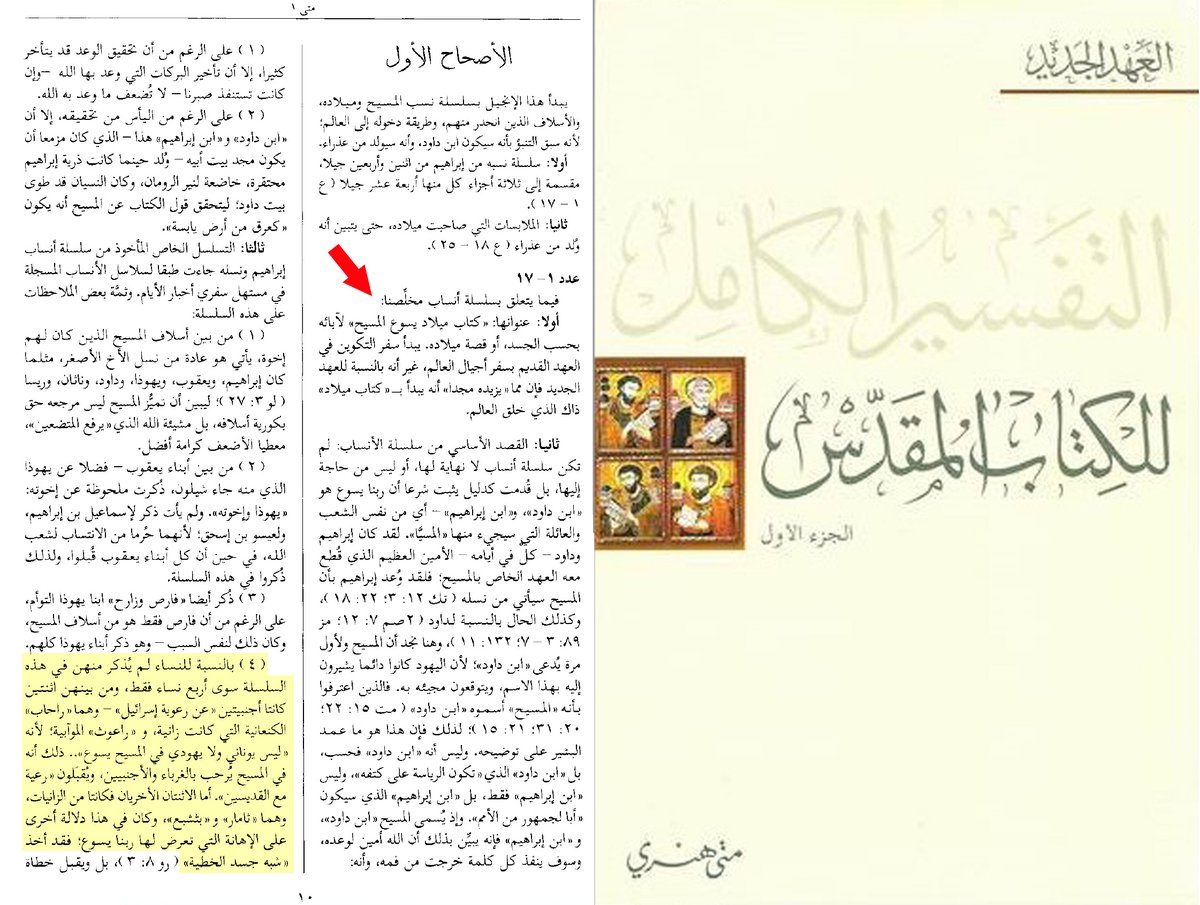 متى ١
الأصحاح الأول
يبدأ هذا الإنجيل بسلسلة نسب المسيح وميلاده،
والأسلاف الذين انحدر منهم، وطريقة دخوله إلى العالم؛
لأنه سبق التنبؤ بأنه سيكون ابن داود، وأنه سيولد من عذراء.
أولا: سلسلة نسبه من إبراهيم من اثنين وأربعين جيلا،
مقسمة إلى ثلاثة أجزاء كل منها أربعة عشر جيلا ( ع
١ – ١٧ ).
ثانيا: الملابسات التي صاحبت ميلاده، حتى يتبين أنه
وُلد من عذراء ( ع ١٨ – ٢٥ ).
عدد ١– ١٧
فيما يتعلق بسلسلة أنساب مخلِّصنا:
أولا: عنوانها: «كتاب ميلاد يسوع المسيح» لآبائه
بحسب الجسد، أو قصة ميلاده. يبدأ سفر التكوين في
العهد القديم بسفر أجيال العالم، غير أنه بالنسبة للعهد
الجديد فإن مما «يزيده مجدا» أنه يبدأ بـ «كتاب ميلاد»
ذاك الذي خلق العالم.
ثانيا: القصد الأساسي من سلسلة الأنساب: لم
تكن سلسلة أنساب لا نهاية لها، أو ليس من حاجة
إليها، بل قُدمت كدليل يثبت شرعا أن ربنا يسوع هو
«ابن داود»، و«ابن إبراهيم» – أي من نفس الشعب
والعائلة التي سيجيء منها «المسيَّا». لقد كان إبراهيم
وداود – كلٌّ في أيامه – الأمين العظيم الذي قُطع
معه العهد الخاص بالمسيح؛ فلقد وُعد إبراهيم بأن
المسيح سيأتي من نسله ( تك ١٢: ٣؛ ٢٢: ١٨ )،
وكذلك الحال بالنسبة لداود ( ٢صم ٧: ١٢؛ مز
٨٩: ٣ – ٧؛ ١٣٢: ١١ )، وهنا نجد أن المسيح ولأول
مرة يُدعى «ابن داود»؛ لأن اليهود كانوا دائما يشيرون
إليه بهذا الاسم، ويتوقعون مجيئه به. فالذين اعترفوا
بأنه «المسيح» أسموه «ابن داود» ( مت ١٥: ٢٢؛
٢٠: ٣١؛ ٢١: ١٥ )؛ لذلك فإن هذا هو ما عمد
البشير على توضيحه. وليس أنه «ابن داود» فحسب،
بل «ابن داود» الذي «تكون الرياسة على كتفه»، وليس
«ابن إبراهيم» فقط، بل «ابن إبراهيم» الذي سيكون
«أبا لجمهور من الأمم». وإذ يُسمى المسيح «ابن داود»،
و «ابن إبراهيم» فإنه يبيِّن بذلك أن الله أمين لوعده،
وسوف ينفذ كل كلمة خرجت من فمه، وأنه:
( ١ ) على الرغم من أن تحقيق الوعد قد يتأخر
كثيرا، إلا أن تأخير البركات التي وعد بها الله –وإن
كانت تستنفذ صبرنا– لا تُضعف ما وعد به الله.
( ٢ ) على الرغم من اليأس من تحقيقه، إلا أن
«ابن داود» و«ابن إبراهيم» هذا– الذي كان مزمعا أن
يكون مجد بيت أبيه – وُلد حينما كانت ذرية إبراهيم
محتقرة، خاضعة لنير الرومان، وكان النسيان قد طوى
بيت داود؛ ليتحقق قول الكتاب عن المسيح أنه يكون
«كعرق من أرض يابسة».
ثالثا: التسلسل الخاص المأخوذ من سلسلة أنساب
إبراهيم ونسله جاءت طبقا لسلاسل الأنساب المسجلة
في مستهل سفري أخبار الأيام. وثمَّة بعض الملاحظات
على هذه السلسلة:
( ١ ) من بين أسلاف المسيح الذين كان لهم
إخوة، يأتي هو عادة من نسل الأخ الأصغر، مثلما
كان إبراهيم، ويعقوب، ويهوذا، وداود، وناثان، وريسا
( لو ٣: ٢٧ )؛ ليبين أن تميُّز المسيح ليس مرجعه حق
بكورية أسلافه، بل مشيئة الله الذي «يرفع المتضعين»،
معطيا الأضعف كرامة أفضل.
( ٢ ) من بين أبناء يعقوب – فضلا عن يهوذا
الذي منه جاء شيلون، ذُكرت ملحوظة عن إخوته:
«يهوذا وإخوته». ولم يأت ذكر لإسماعيل بن إبراهيم،
ولعيسو بن إسحق؛ لأنهما حُرما من الانتساب لشعب
الله، في حين أن كل أبناء يعقوب قُبلوا، ولذلك
ذُكروا في هذه السلسلة.
( ٣ ) ذُكر أيضا «فارص وزارح» ابنا يهوذا التوأم،
على الرغم من أن فارص فقط هو من أسلاف المسيح،
وكان ذلك لنفس السبب – وهو ذكر أبناء يهوذا كلهم.
( ٤ ) بالنسبة للنساء لم يُذكر منهن في هذه
السلسلة سوى أربع نساء فقط، ومن بينهن اثنتين
كانتا أجنبيتين «عن رعوية إسرائيل» – وهما «راحاب»
الكنعانية التي كانت زانية، و «راعوث» الموآبية؛ لأنه
«ليس يوناني ولا يهودي في المسيح يسوع».. ذلك أنه
في المسيح يُرحب بالغرباء والأجنبيين، ويُقبَلون «رعية
مع القديسين». أما الاثنتان الأخريان فكانتا من الزانيات،
وهما «ثامار» و «بثشبع»، وكان في هذا دلالة أخرى
على الإهانة التي تعرض لها ربنا يسوع؛ فقد أخذ
«شبه جسد الخطية» ( رو ٨: ٣ )، بل ويقبل خطاة
١٠
العهد الجديد
التفسير الكامل
للكتاب المقدّس
الجزء الأول
متى هنري